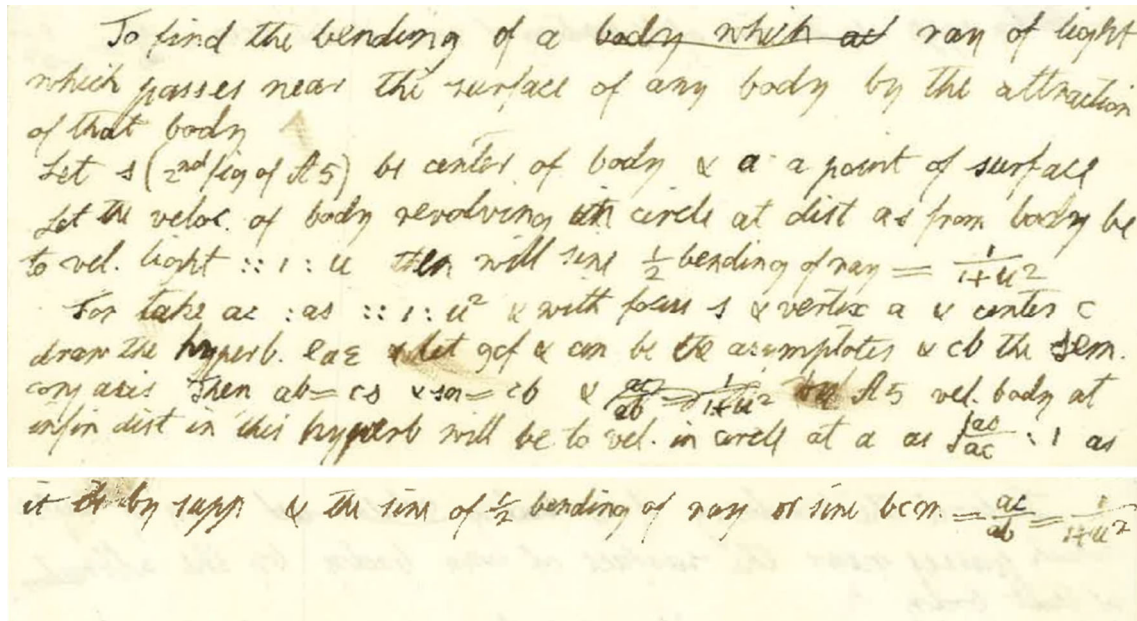 To find the bending of a body which at ray of light
which passes near the surface of any body by the attraction
of that body
Let s (2nd fig of A5) be center of body & a a point of surface
Let the veloc. of body revolving in circle at dist as from body be
to vel. light :: 1 : u then will sine ½ bending of ray = 1/1+u²
For take ac : as :: 1 : u² & with focus s & vertix a & center c
draw the hyperb. let gcf & cm be the asymptotes & cb the sem.
conj axis Then ab = cs & sn = cb & ac/ab = 1/1+u² A5 vel. body at
infin dist in this hyperb will be to vel. in circle at a as √as/ac : 1 as
it is by supp. & the sine of ½ bending of ray or sine bcm = ac/ab = 1/1+u²